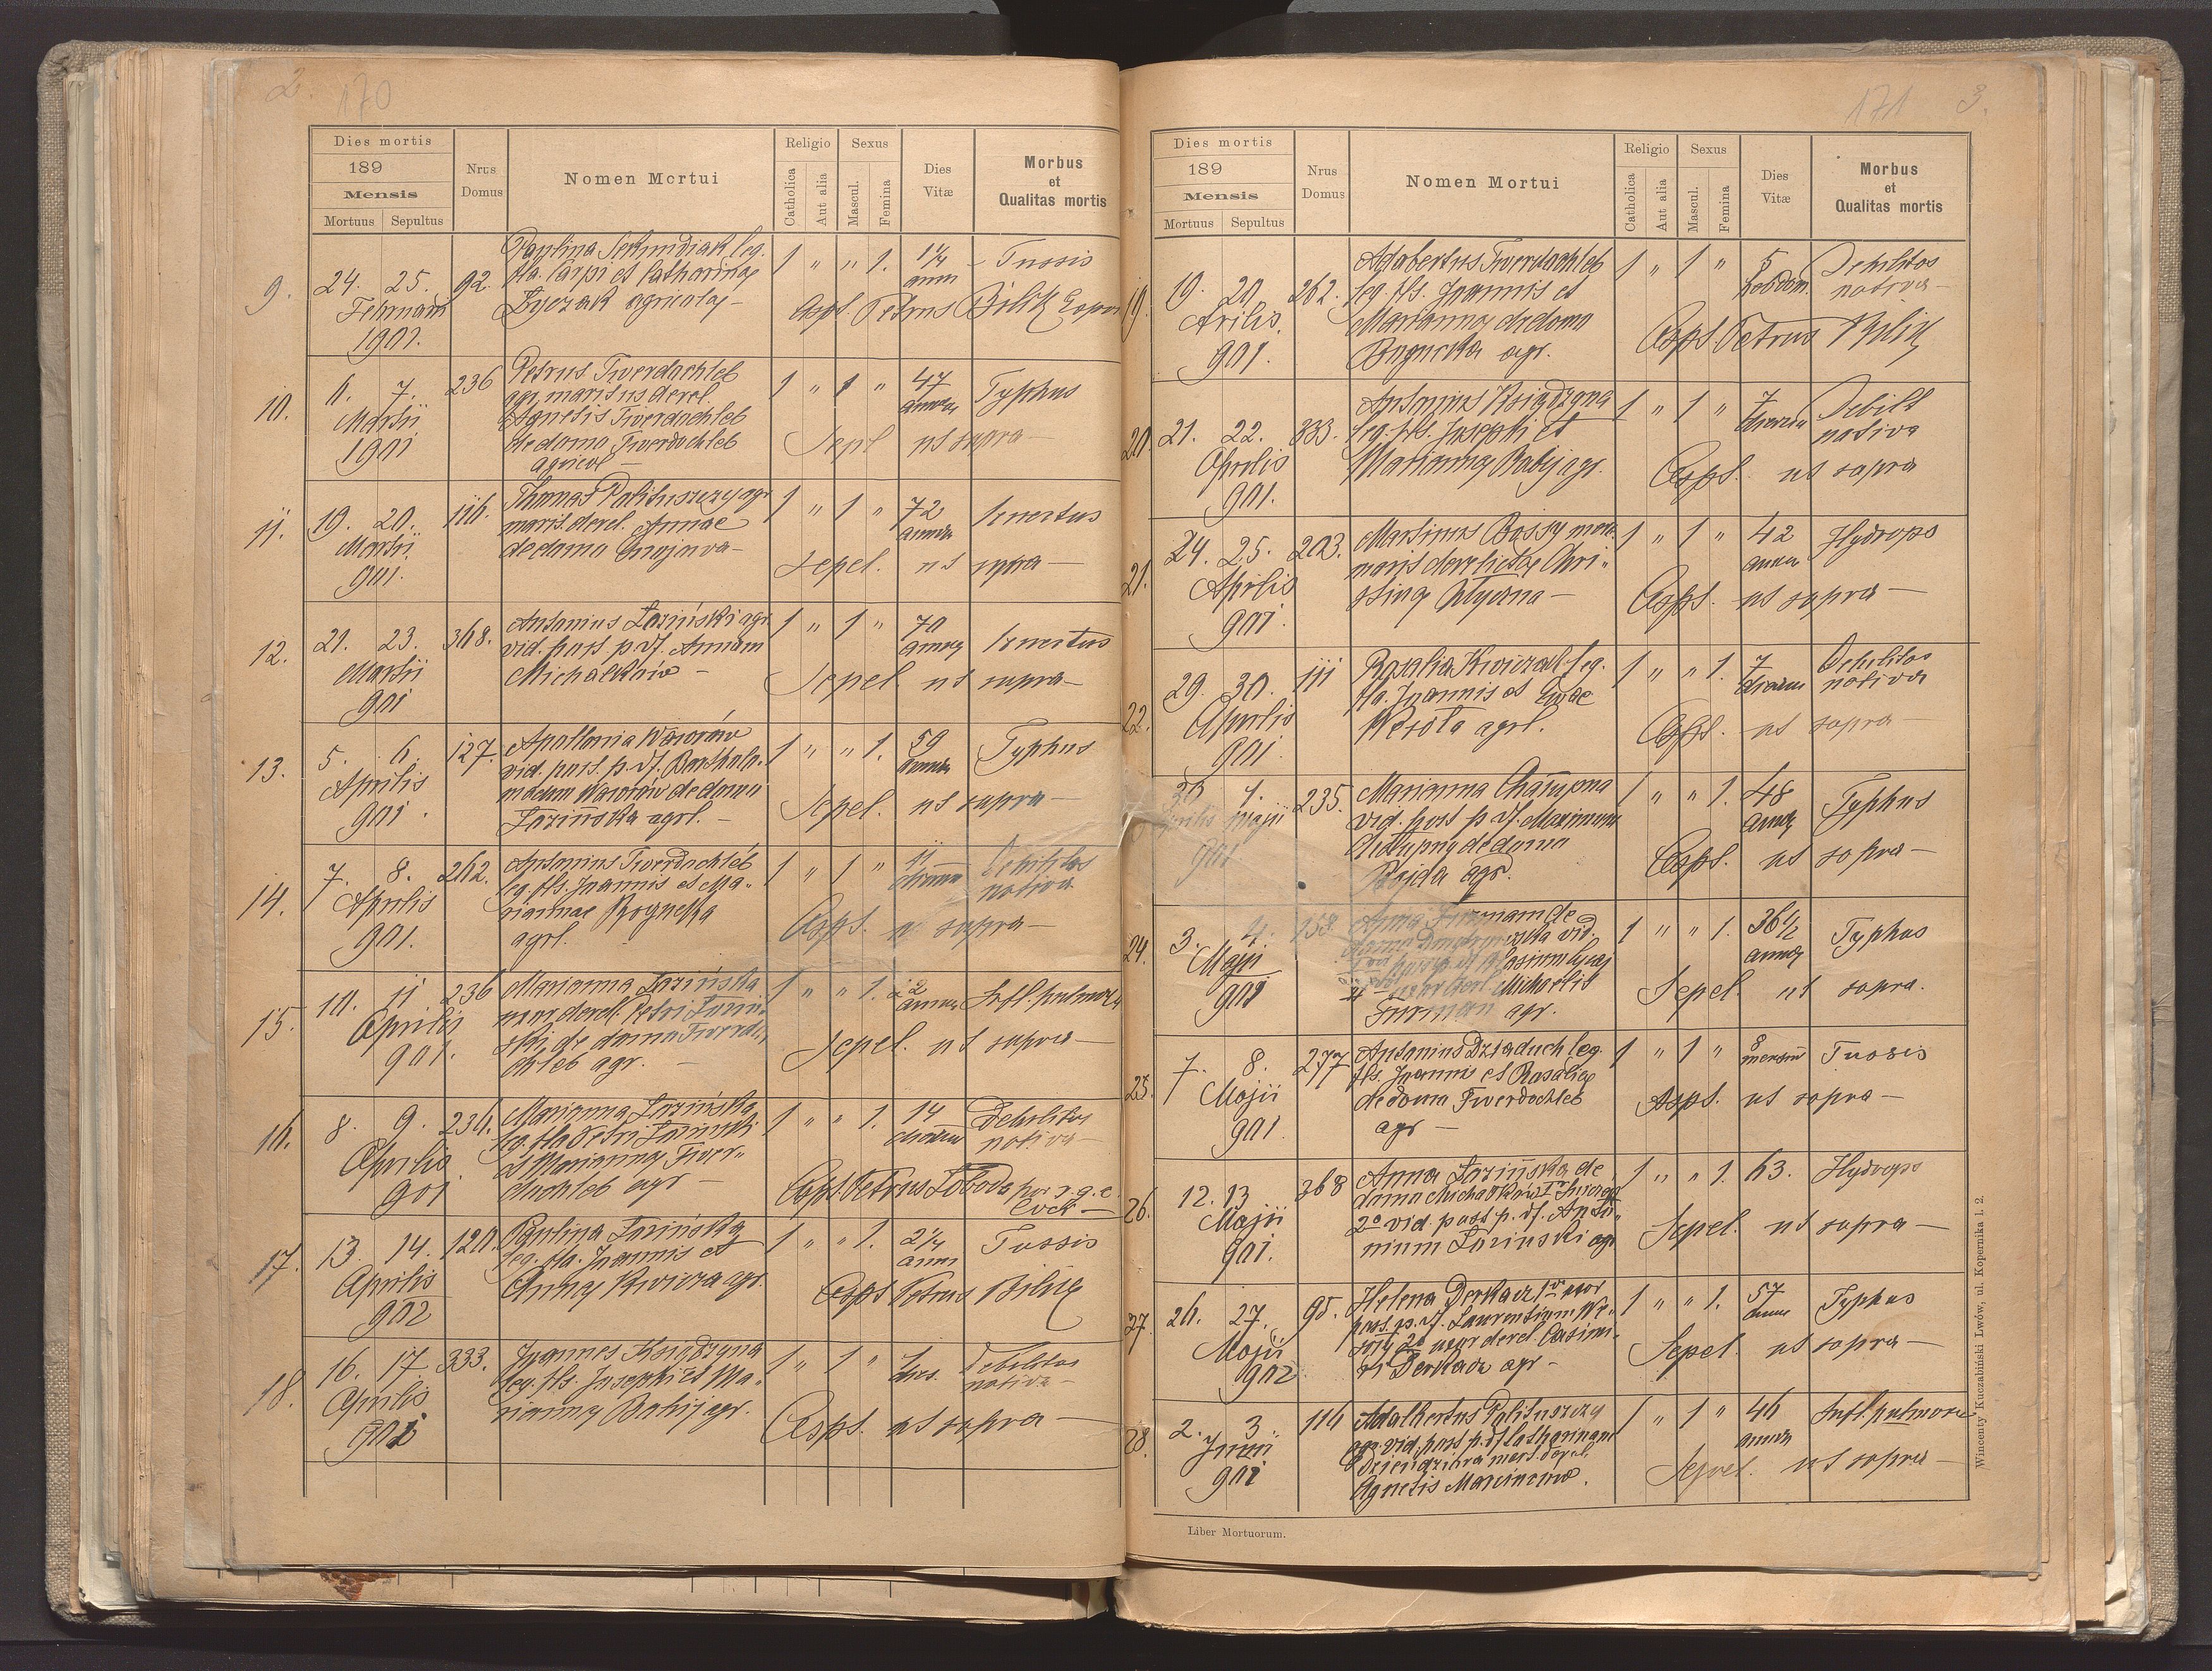 2. 170
Dies mortis
189
Mensis
Mortuus Sepultus
Nrus Domus
Nomen Mortui
Religio
Catholica
Aut alia
Sexus
Mascul.
Femina
Dies Vitæ
Morbus
et
Qualitas mortis
9. 24. 25. 92. 1 " " 1. 1/4 Tussis
Paulina leg.
fla. Karpi et Catharinae
agricolae –
1901.
Aspt. Petrus Bilik
10. 6. 7. 236 Petrus Twerdochleb 1 " 1 " 47 Typhus
agr. maritus derel.
Martii Agnetis Twerdochleb annor
1901 de domo Twerdochleb Sepel ut supra –
agricol –
11. 19. 20. 116. Thomas Palituszczy agr 1 " 1 " 72
Martii marit derel. Annae annor
901. de domo Sepel. ut supra –
12. 21. 23. 368. Antonius Łoziński agr. 1 " 1 " 70
vid. post p. df. Annam annor
Martii Michałków –
901 Sepel. ut supra –
13. 5. 6. 127. Apollonia 1 " " 1. 59 Typhus
Aprilis vid. post. p. df. Bartholo- annor
maeum de domo
901. Łozińska agrl. – Sepel. ut supra –
14. 7. 8. 262. Antonius Twerdochléb 1 " 1 " 11 Debilitas
leg. fls. Joannis et Ma- dierum nativa
Aprilis riannae
901. agrl. Aspt. ut supra –
15. 10. 11 236 Marianna Łozińska 1 " " 1. Infl. pulmon
uxor derel. Petri Łoziń- annor
Aprilis ski, de domo Twerdo-
901. chleb agr. – Sepel. ut supra –
16. 8. 9. 236. Marianna Łozińska 1 " " 1. 14 Debilitas
leg. fla Petri Łoziński dierum nativa –
Aprilis et Marianna Twer-
901 dochleb agr – Aspt. Petrus Łoboda
17. 13. 14. 120. Paulina Łozińska 1 " " 1. 2 1/4 Tussis
leg. fla. Joannis et anni
Aprilis Annae agr.
902 Aspt Petrus Bilik
18. 16. 17. 333. Joannes Księdzyna 1 " 1 " 1 Debilitas
leg. fls. Josephi et Ma- dies. nativa –
Aprilis rianna Babij agr.
901 Aspt. ut supra –
171 3.
Dies mortis
189
Mensis
Mortuus Sepultus
Nrus Domus
Nomen Mortui
Religio
Catholica
Aut alia
Sexus
Mascul.
Femina
Dies Vitæ
Morbus
et
Qualitas mortis
19. 19. 20 262. Adabertus Twerdochleb 1 " 1 " 5 Debilitas
leg. fls. Joannis et hebdom. nativa –
Marianna de domo
901. agr. Aspt. Petrus Bilik
20. 21. 22. 333. Antonius Księdzyna 1 " 1 " 7 Debilt
leg. fls. Josephi et dierum nativa
Aprilis Marianna Babij agr.
901. Aspt. ut supra
21. 24. 25. 203. Martinus 1 " 1 " 42 Hydrops
marit derelictae Chri- annor
Aprilis stina
901. Aspt. ut supra –
22. 29. 30. 111 Rozalia Kwiczal leg. 1 " " 1. 7 Debilitas
fla. Joannis et Evae dierum nativa
Aprilis Wesoła agrl.
901 Aspt. ut supra –
30 1. 235. Marianna Chałupna 1 " " 1. 48 Typhus
Aprilis Maji vid. post p. df. annor
901 Chałupny de domo
Bojda agr. Aspt. ut supra –
24. 3. 4. 158 Anna Furman de 1 " " 1. 36 1/2 Typhus
domo vid. annor
Maji
901 Michaelis
Furman agr. Sepel. ut supra.
25. 7. 8. 277 Antonius Dziaduch leg. 1 " 1 " 8 Tussis
fls. Joannis et Rosaliae mensiu
Majii de domo Twerdochleb
901 agr – Aspt. ut supra –
26. 12. 13 368 Anna Łozińska de 1 " " 1. 63. Hydrops
domo Michałków
Majii 2o vid. post p. df. Anto-
901. nium Łoziński agr Sepel. ut supra –
27. 26. 27. 95. Helena Derkacz uxor 1 " " 1. 57 Typhus
post. p. df. Laurentium We-
Majii soły 2o uxor derel. Casimi-
902 ri Derkacz agr – Sepel. ut supra –
28. 2. 3 116 Adalbertus Palituszczy 1 " 1 " 46 Infl. pulmonu
agr. vid. post p. df Catharinam annor
Junii
901 Agnetis Sepel. ut supra –
Liber Mortuorum.
Wincenty Kuczabiński Lwów, ul. Kopernika l. 2.